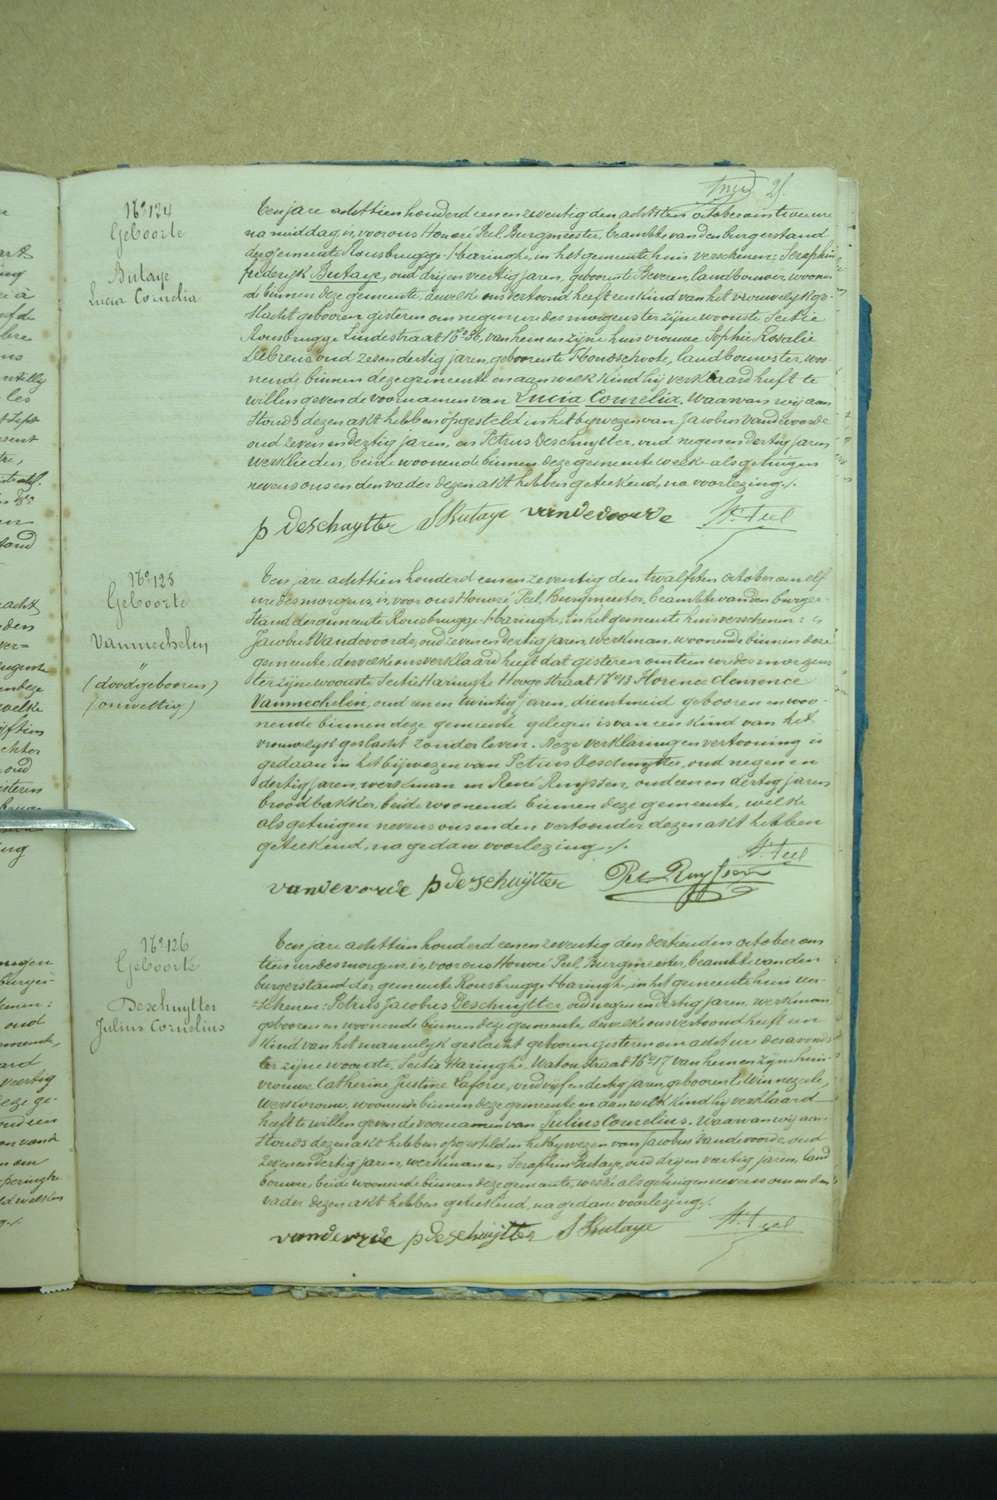 N° 124
Geboorte
Butaye
Lucia Cornelia
Ten jare achttien honderd een en zeventig den achtsten october om
na middag is, voor ons Honoré Peel, Burgmeester, beambte van den burgerstand
der gemeente Rousbrugge-Haringhe, in het gemeente huis verschenen: Seraphin
frederyk Butaye, oud dry en veertig jaren, geboren te Beveren, landbouwer, woonen-
de binnen deze gemeente, dewelke ons vertoond heeft een kind van het vrouwelyk ge-
slacht geboren gisteren om negen ure des morgens ter zyne wooste Sectie
Rousbrugge Lindestraat N° 36, van hem en zyne huisvrouwe Sophie Rosalie
oud zes en dertig jaren, geboren te Hondschoote, landbouwster, woo-
nende binnen deze gemeente en aan welk kind hy verklaard heeft te
willen geven de voornamen van Lucia Cornelia. Waarvan wy aan-
stonds dezen akt hebben opgesteld in het bywezen van Jacobus Vandevoorde
oud zeven en dertig jaren, en Petrus Deschuytter, oud negen en dertig jaren,
werklieden, beide woonende binnen deze gemeente welke als getuigen
nevens ons en den vader dezen akt hebben geteekend, na voorlezing./.
p deschuytter S Butaye vandevoorde H. Peel
N° 125
Geboorte
Vanmechelen
"
(doodgeboren)
(onwettig)
Ten jare achttien honderd een en zeventig den twalfsten october om elf
ure des morgens, is, voor ons Honoré Peel, Burgmeester, beambte van den burger-
stand der gemeente Rousbrugge-Haringhe, in het gemeente huis verschenen:
Jacobus Vandevoorde, oud zeven en dertig jaren, werkman, woonende binnen deze
gemeente, dewelke ons verklaard heeft dat gisteren om tien ure des morgens
ter zyne wooste Sectie Haringhe Hooge straat N° 43 Florence Clemence
Vanmechelen, oud een en twintig jaren, dienstmeid geboren en woo-
nende binnen deze gemeente gelegen is van een kind van het
vrouwelyk geslacht zonder leven. Deze verklaring en vertooning is
gedaan in het bywezen van Petrus Deschuytter, oud negen en
dertig jaren, werkman en René Ruyssen, oud een en dertig jaren
broodbakker, beide woonende binnen deze gemeente, welke
als getuigen nevens ons en den vertooner dezen akt hebben
geteekend, na gedane voorlezing./.
H. Peel
vandevorde p deschuytter
N° 126
Geboorte
Deschuytter
Julius Cornelius
Ten jare achttien honderd een en zeventig den dertienden october om
tien ure des morgens, is, voor ons Honoré Peel, Burgmeester, beambte van den
burgerstand der gemeente Rousbrugge-Haringhe, in het gemeente huis ver-
schenen: Petrus Jacobus Deschuytter, oud negen en dertig jaren, werkman
geboren en woonende binnen deze gemeente dewelke ons vertoond heeft een
kind van het mannelyk geslacht geboren gisteren om acht ure des avonds
ter zyne wooste, Sectie Haringhe, Watou straat N° 17 van hem en zyne huis-
vrouwe Catherine Justine Laforce, oud vyf en dertig jaren, geboren te Winnezeele,
werkvrouw, woonende binnen deze gemeente en aan welk kind hy verklaard
heeft te willen geven de voornamen van Julius Cornelius. Waarvan wy aan-
stonds dezen akt hebben opgesteld in het bywezen van Jacobus Vandevoorde, oud
zeven en dertig jaren, werkman en Seraphin Butaye, oud dry en veertig jaren, land
bouwer, beide woonende binnen deze gemeente, welke als getuigen nevens ons en den
vader dezen akt hebben geteekend, na gedane voorlezing./.
vandevorde p deschuytter S Butaye H. Peel